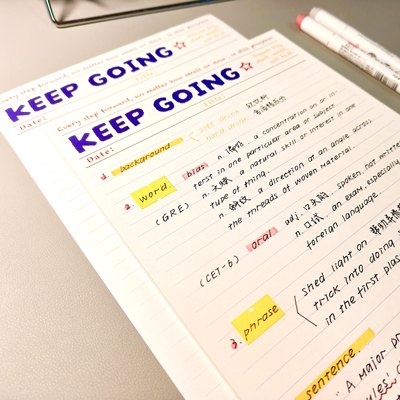 Every step forward, no matter how small
KEEP GOING
Date:
Every step forward, no matter how small or slow, is still progress.
KEEP GOING
Date:
1. background
2. word
bias n. a concentration on or in-
terest in one particular area or subject.
n. 天赋 a natural skill or interest in one
type of thing.
(GRE) n. 斜纹 a direction at an angle across
the threads of woven material.
(CET-6) oral adj. 口头的 spoken, not written
n. 口试 an exam, especially
foreign language.
3. phrase
shed light on
trick into doing
in the first plas
sentence
"A major pr